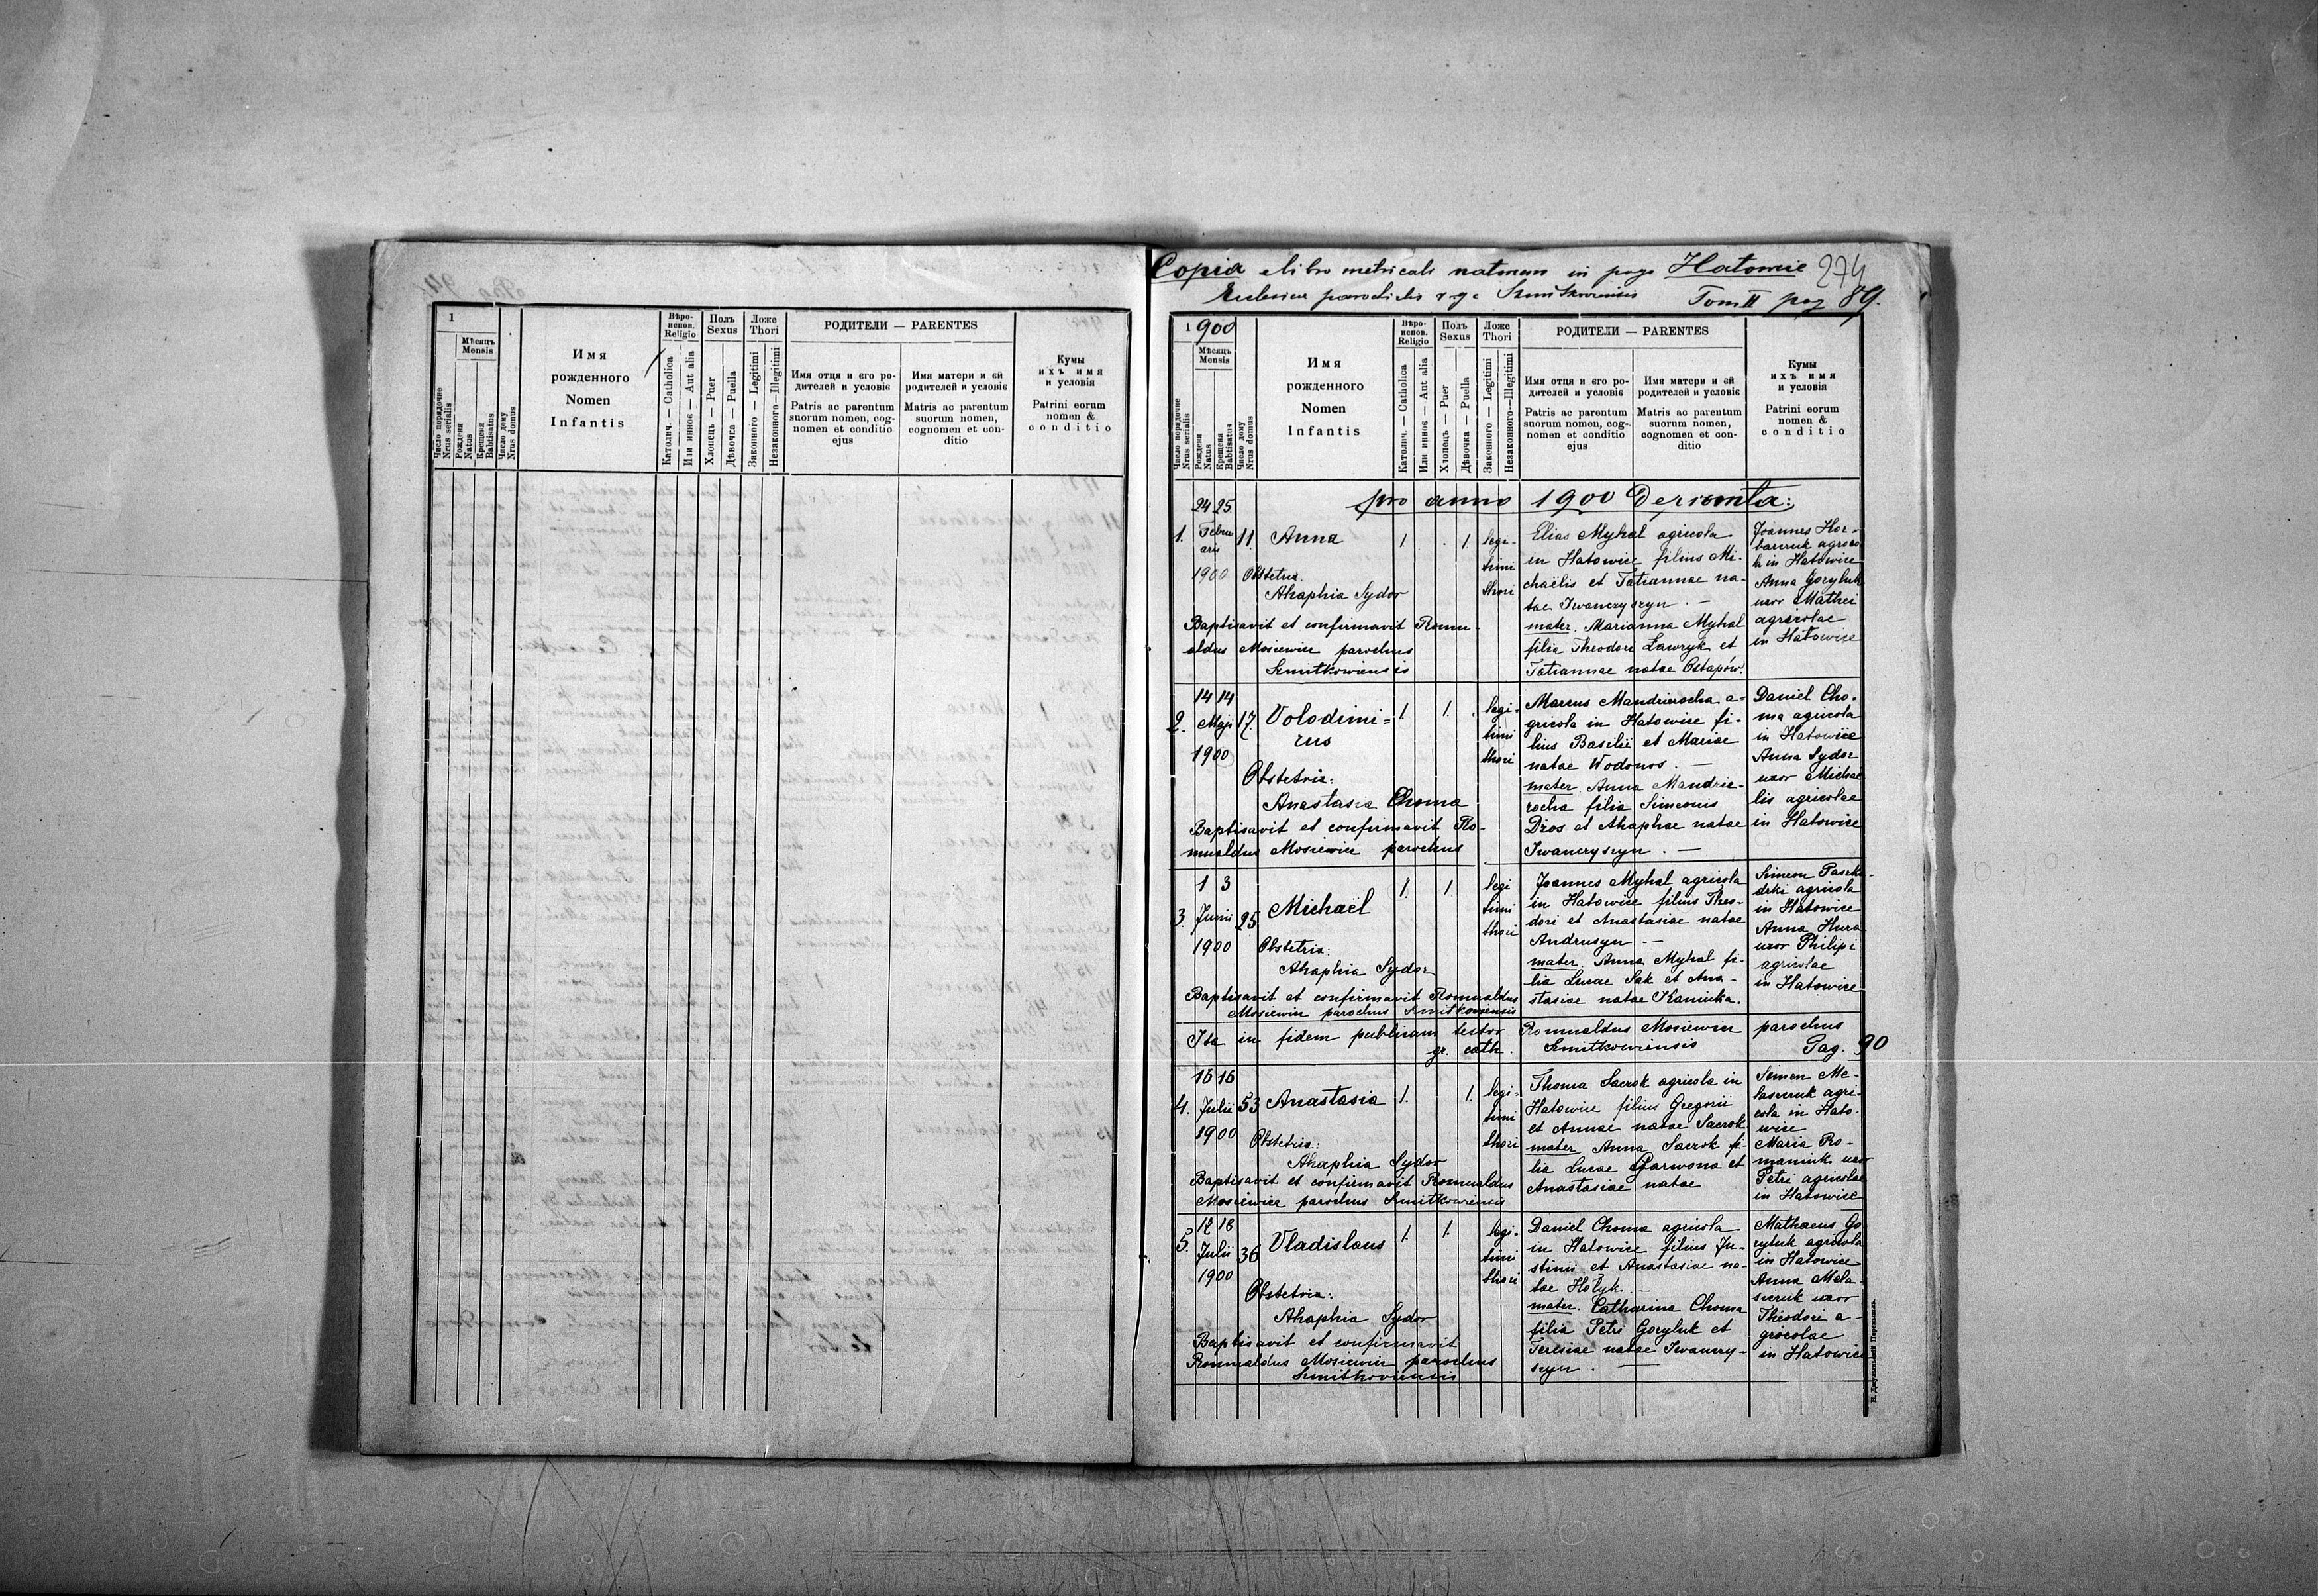 1
Мѣсяцъ
Mensis
Число порядочне
Nrus serialis
Рожденя
Natus
Крещеня
Babtisatus
Число дому
Nrus domus
Имя
рожденного
Nomen
Infantis
Вѣро-
испов.
Religio
Католич. — Catholica
Или инное — Aut alia
Полъ
Sexus
Хлопецъ — Puer
Дѣвочка — Puella
Ложе
Thori
Законного — Legitimi
Незаконного — Illegitimi
РОДИТЕЛИ — PARENTES
Имя отця и его ро-
дителей и условіє
Patris ac parentum
suorum nomen, cog-
nomen et conditio
ejus
Имя матери и єй
родителей и условіє
Matris ac parentum
suorum nomen,
cognomen et con-
ditio
Кумы
ихъ имя
и условія
Patrini eorum
nomen &
conditio
Copia e libro metricali natorum in pago Hatowice 274
Ecclesiae parochialis r. g. c. Smitkowiensis Tom II pag 89.
1900
Мѣсяцъ
Mensis
Число порядочне
Nrus serialis
Рожденя
Natus
Крещеня
Babtisatus
Число дому
Nrus domus
Имя
рожденного
Nomen
Infantis
Вѣро-
испов.
Religio
Католич. — Catholica
Или инное — Aut alia
Полъ
Sexus
Хлопецъ — Puer
Дѣвочка — Puella
Ложе
Thori
Законного — Legitimi
Незаконного — Illegitimi
РОДИТЕЛИ — PARENTES
Имя отця и его ро-
дителей и условіє
Patris ac parentum
suorum nomen, cog-
nomen et conditio
ejus
Имя матери и єй
родителей и условіє
Matris ac parentum
suorum nomen,
cognomen et con-
ditio
Кумы
ихъ имя
и условія
Patrini eorum
nomen &
conditio
pro anno 1900
1.
24 25
Febru
arii
1900
11.
Anna
1
1.
legi-
timi
thori
Obstetrix.
Ahaphia Sydor
Baptisavit et confirmavit Romu-
aldus Mosiewicz parochus
Smitkowiensis
Elias Myhal agricola
in Hatowice filius Mi-
chaëlis et Tatiannae na-
tae Iwanczyszyn. —
mater. Marianna Myhal
filia Theodori Ławryk et
Tatiannae natae Ostapów.
Joannes Hor-
barczuk agrico
la in Hatowice
Anna Goryluk
uxor Mathei
agricolae
in Hatowice
2.
14 14
Maji
1900
17.
Volodimi=
rus
1.
1.
legi-
timi
thori
Obstetrix:
Anastasia Choma
Baptisavit et confirmavit Ro-
mualdus Mosiewicz parochus
Marcus Mandzierocha a-
gricola in Hatowice fi-
lius Basilii et Mariae
natae Wodonos. —
mater. Anna Mandzie-
rocha filia Simeonis
Dżos et Ahaphae natae
Iwanczyszyn. —
Daniel Cho-
ma agricola
in Hatowice
Anna Sydor
uxor Michaë
lis agricolae
in Hatowice
3.
1 3
Junii
1900
25.
Michaël
1.
1
legi
timi
thori
Obstetrix:
Ahaphia Sydor
Baptisavit et confirmavit Romualdus
Mosiewicz parochus Smitkowiensis
Joannes Myhal agricola
in Hatowice filius Theo-
dori et Anastasiae natae
Andrusyn —
mater. Anna Myhal fi-
lia Lucae Sak et Ana-
stasiae natae Kaminka.
Simeon
agricola
in Hatowice
Anna Hura
uxor Philipi
agricolae
in Hatowice
Ita in fidem publicam testor Romualdus Mosiewicz parochus
gr. cath. Smitkowiensis
Pag. 90
4.
15 15
Julii
1900
53
Anastasia
1.
1.
legi-
timi
thori
Obstetrix:
Ahaphia Sydor
Baptisavit et confirmavit Romualdus
Mosiewicz parochus Smitkowiensis
Thoma Saczok agricola in
Hatowice filius Gregorii
et Annae natae Saczok
mater Anna Saczok fi-
lia Lucae et
Anastasiae natae
Simon Me-
laszczuk agri-
cola in Hato-
wice
Maria Ro-
maniuk uxor
Petri agricolae
in Hatowice
5.
12 18
Julii
1900
36
Vladislaus
1.
1.
legi-
timi
thori
Obstetrix:
Ahaphia Sydor
Baptisavit et confirmavit
Romualdus Mosiewicz parochus
Smitkowiensis
Daniel Choma agricola
in Hatowice filius Ju-
stinii et Anastasiae na-
tae Hołyk. —
mater. Catharina Choma
filia Petri Goryluk et
Teresiae natae Iwanczy-
szyn. —
Mathaeus Go
ryluk agricola
in Hatowice
Anna Mela-
szczuk uxor
Theodori a-
gricolae
in Hatowice